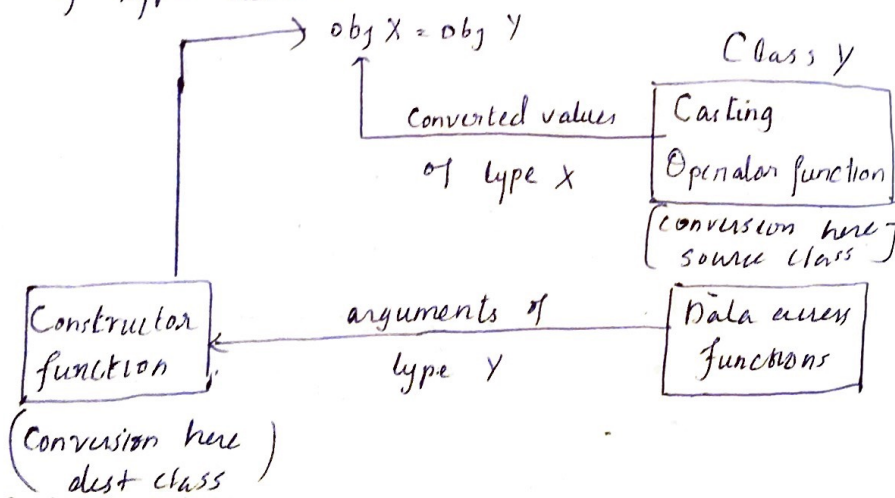 obj X = obj Y
Class Y
Converted values
of type X
Casting
Operator function
(conversion here -
source class)
Constructor
function
arguments of
type Y
Data access
functions
(Conversion here
dest class)